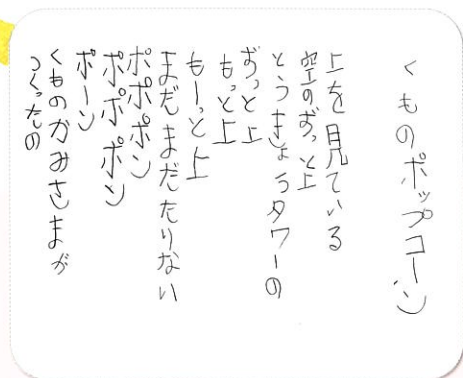 くものポップコーン
上を見ている
空のずっと上
とうきょうタワーの
ずっと上
もっと上
もーっと上
まだまだたりない
ポポポン
ポポポン
ポーン
くものかみさまが
つくったの